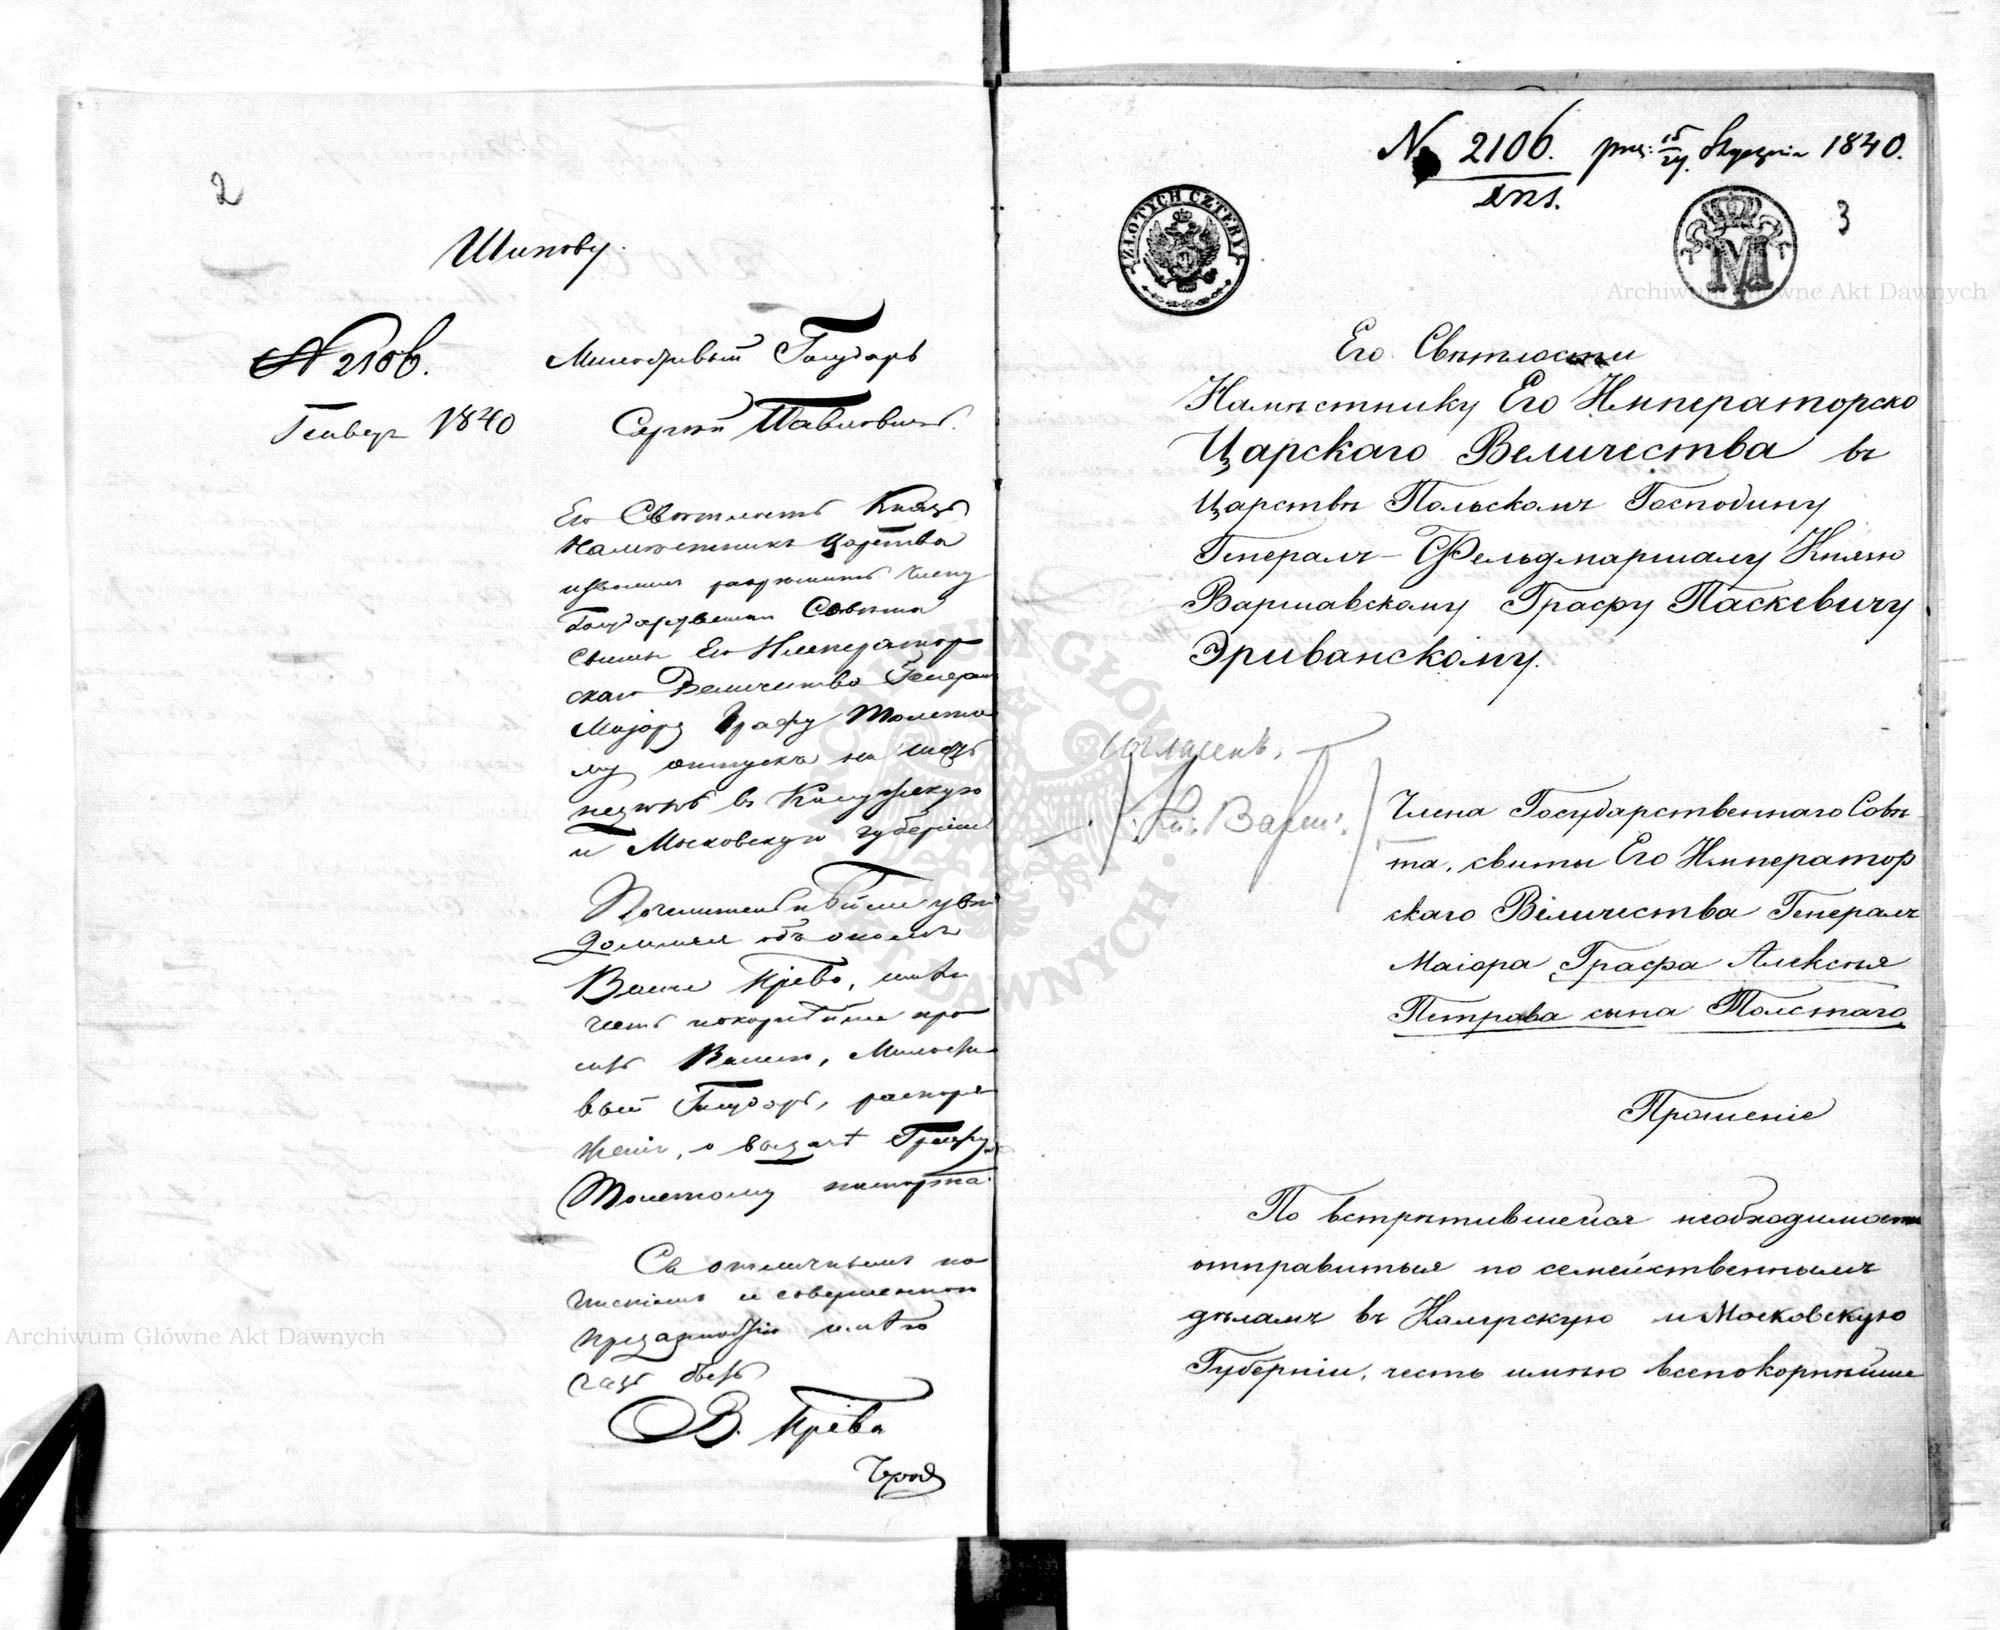 2
Шипову.
№ 2106.
Генвар 1840
Милостивый Государь
Сергѣй Павловичь.
Его Свѣтлость Князь
Намѣстникъ Царства
изволилъ разрѣшить Члену
Государствен Совѣта
свиты Его Император
скаго Величества Генерал
Маіору Графу Толсто
му отпускъ на шесть
недѣль въ Калужскую
и Московскую губерніи
Почтительнѣйше увѣ
домляя объ ономъ
Ваше Прево, имѣю
честь покорнѣйше про
сить Вашего, Милости
вый Государь, распоря
женія, о выдачѣ Графу
Толстому паспорта.
Съ отличнымъ по
чтеніемъ и совершенною
преданностію имѣю
честь быть
В. Прево
№ 2106. 15/27. Stycznia 1840.
3
ZŁOTYCH CZTERY
M
Его Свѣтлости
Намѣстнику Его Императорско
Царскаго Величества въ
Царствѣ Польскомъ Господину
Генералъ-Фельдмаршалу Князю
Варшавскому Графу Паскевичу
Эриванскому.
Согласенъ.
Кн: Варш:
Члена Государственнаго Совѣ
та, свиты Его Император
скаго Величества Генералъ
Маіора Графа Алексѣя
Петрова сына Толстаго
Прошеніе
По встрѣтившейся необходимости
отправиться по семейственнымъ
дѣламъ въ Калужскую и Московскую
Губерніи, честь имѣю всепокорнѣйше
Archiwum Główne Akt Dawnych
Archiwum Główne Akt Dawnych
ARCHIWUM GŁÓWNE AKT DAWNYCH